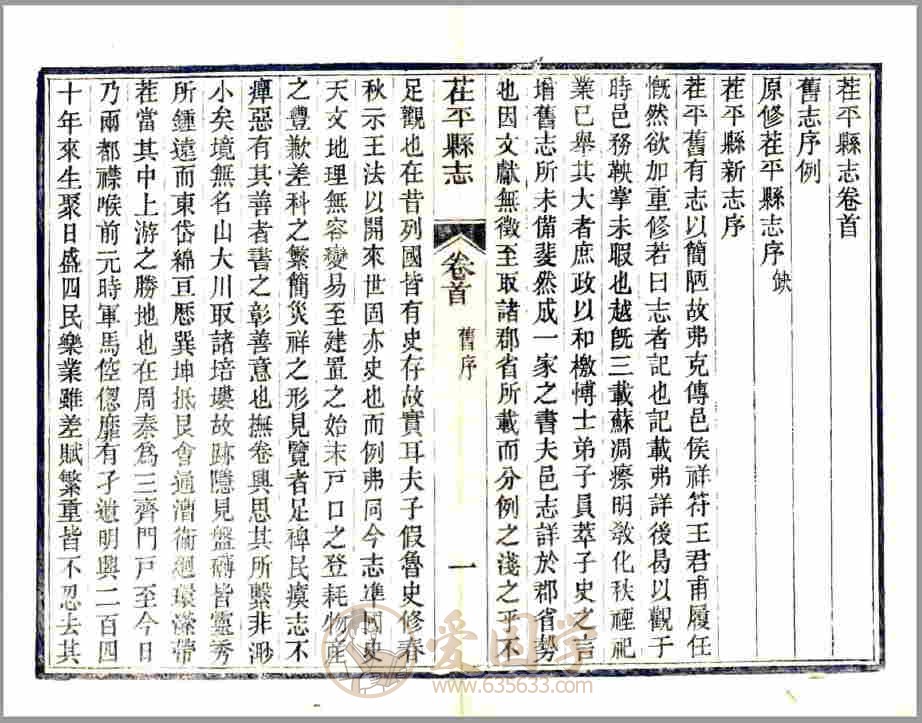 茌平縣志卷首
舊志序例
原修茌平縣志序 缺
茌平縣新志序
茌平舊有志以簡陋故弗克傳邑侯祥符王君甫履任
慨然欲加重修若曰志者記也記載弗詳後曷以觀于
時邑務鞅掌未暇也越旣三載蘇凋瘵明敎化秩禋祀
業已舉其大者庶政以和檄博士弟子員萃子史之言
增舊志所未備斐然成一家之書夫邑志詳於郡省勢
也因文獻無徵至取諸郡省所載而分例之淺之乎不
茌平縣志
卷首
舊序
一
足觀也在昔列國皆有史存故實耳夫子假魯史修春
秋示王法以開來世固亦史也而例弗同今志準國史
天文地理無容變易至建置之始末戶口之登耗物產
之豐歉差科之繁簡災祥之形見覽者足裨民瘼志不
癉惡有其善者書之彰善意也撫卷興思其所繫非渺
小矣境無名山大川取諸培塿故跡隱見盤礴皆靈秀
所鍾遠而東岱綿亘歷巽坤抵艮會通漕衞廻環濚帶
茌當其中上游之勝地也在周秦爲三齊門戶至今日
乃兩都襟喉前元時軍馬倥傯靡有孑遺明興二百四
十年來生聚日盛四民樂業雖差賦繁重皆不忍去其
爱国学
www.635633.com